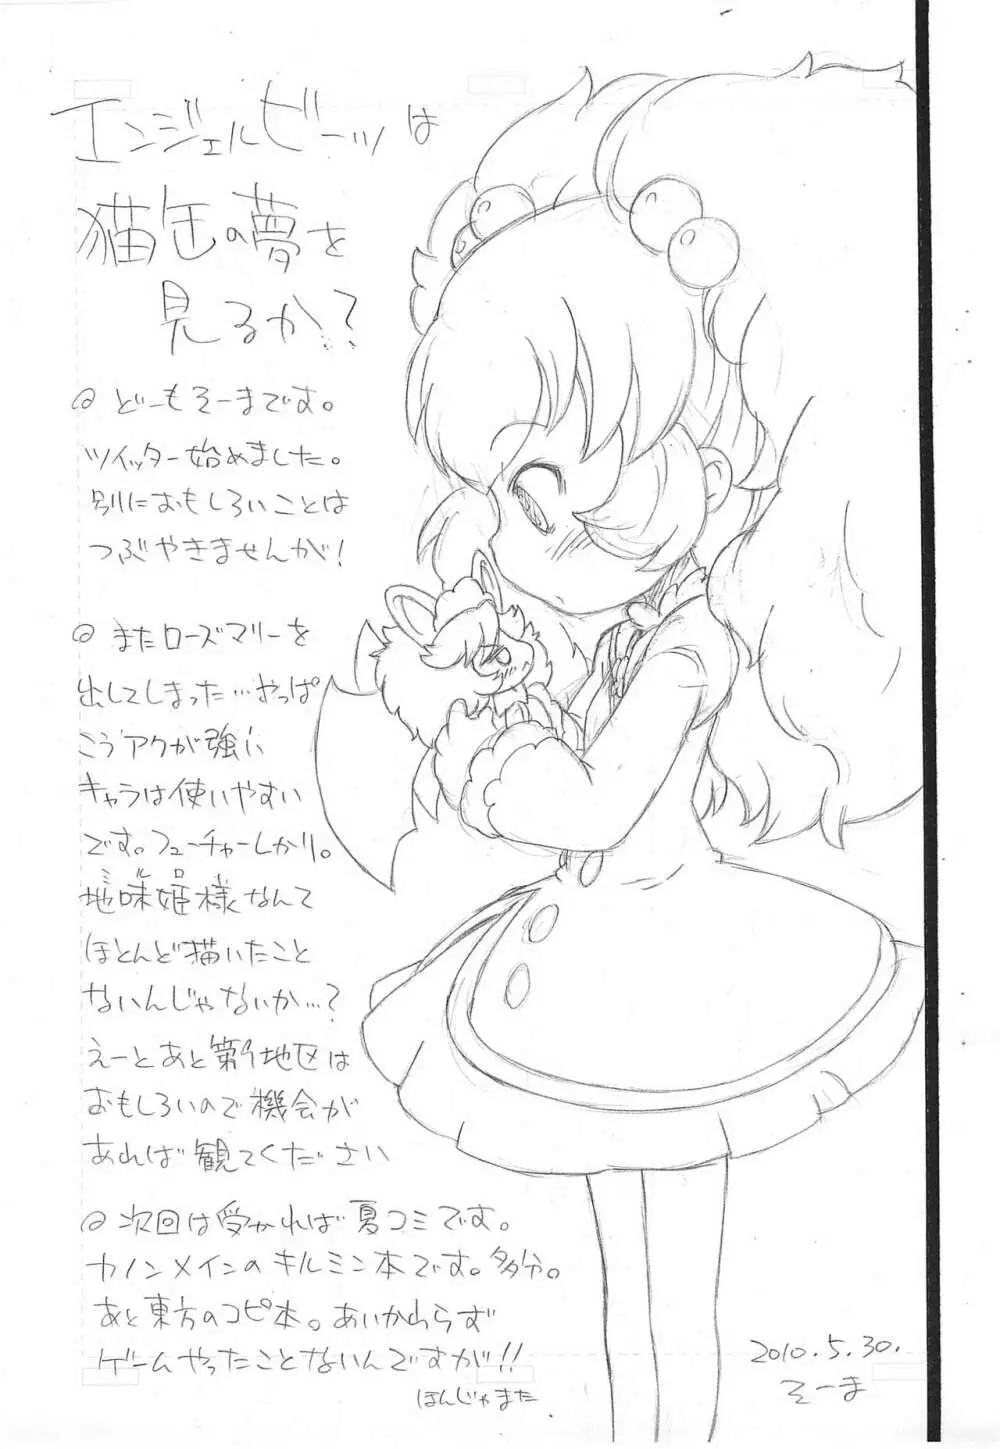 エンジェルビーツは
猫缶の夢を
見るか?
◎ どーもそーまです。
ツイッター始めました。
別におもしろいことは
つぶやきませんが!
◎ またローズマリーを
出してしまった…やっぱ
こうアクが強い
キャラは使いやすい
です。フューチャーしかり。
ミルロ
地味姫様なんて
ほとんど描いたこと
ないんじゃないか…?
えーとあと第9地区は
おもしろいので機会が
あれば観てください
◎ 次回は受かれば夏コミです。
カノンメインのキルミン本です。多分。
あと東方のコピ本。あいかわらず
ゲームやったことないんですが!!
ほんじゃまた
2010.5.30.
そーま